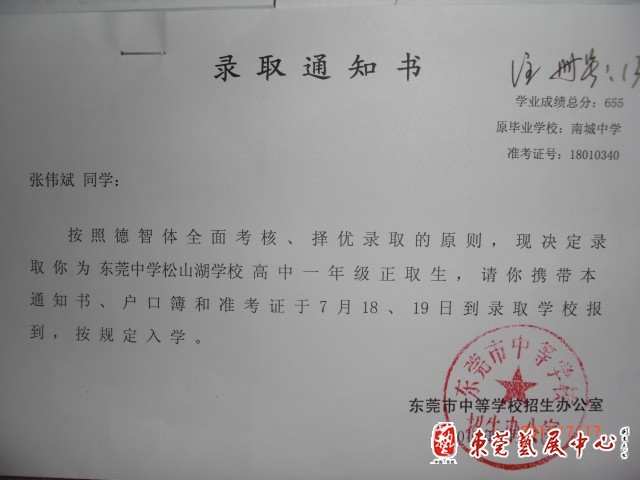 录取通知书
注册
学业成绩总分：655
原毕业学校：南城中学
准考证号：18010340
张伟斌 同学：
按照德智体全面考核、择优录取的原则，现决定录
取你为 东莞中学松山湖学校 高中一年级正取生，请你携带本
通知书、户口簿和准考证于7月18、19日到录取学校报
到，按规定入学。
东莞市中等学校
东莞市中等学校招生办公室
招生办公室
东莞艺展中心